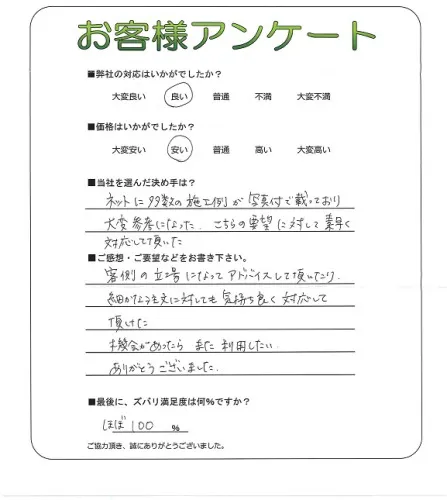 お客様アンケート
■弊社の対応はいかがでしたか？
大変良い 良い 普通 不満 大変不満
■価格はいかがでしたか？
大変安い 安い 普通 高い 大変高い
■当社を選んだ決め手は？
ネットに多数の施工例が写真付で載っており
大変参考になった。こちらの要望に対して素早く
対応して頂いた
■ご感想・ご要望などをお書き下さい。
客側の立場になってアドバイスして頂いたり、
細かなる注文に対しても気持ち良く対応して
頂けた
機会があったらまた利用したい。
ありがとうございました。
■最後に、ズバリ満足度は何%ですか？
ほぼ100 %
ご協力頂き、誠にありがとうございました。